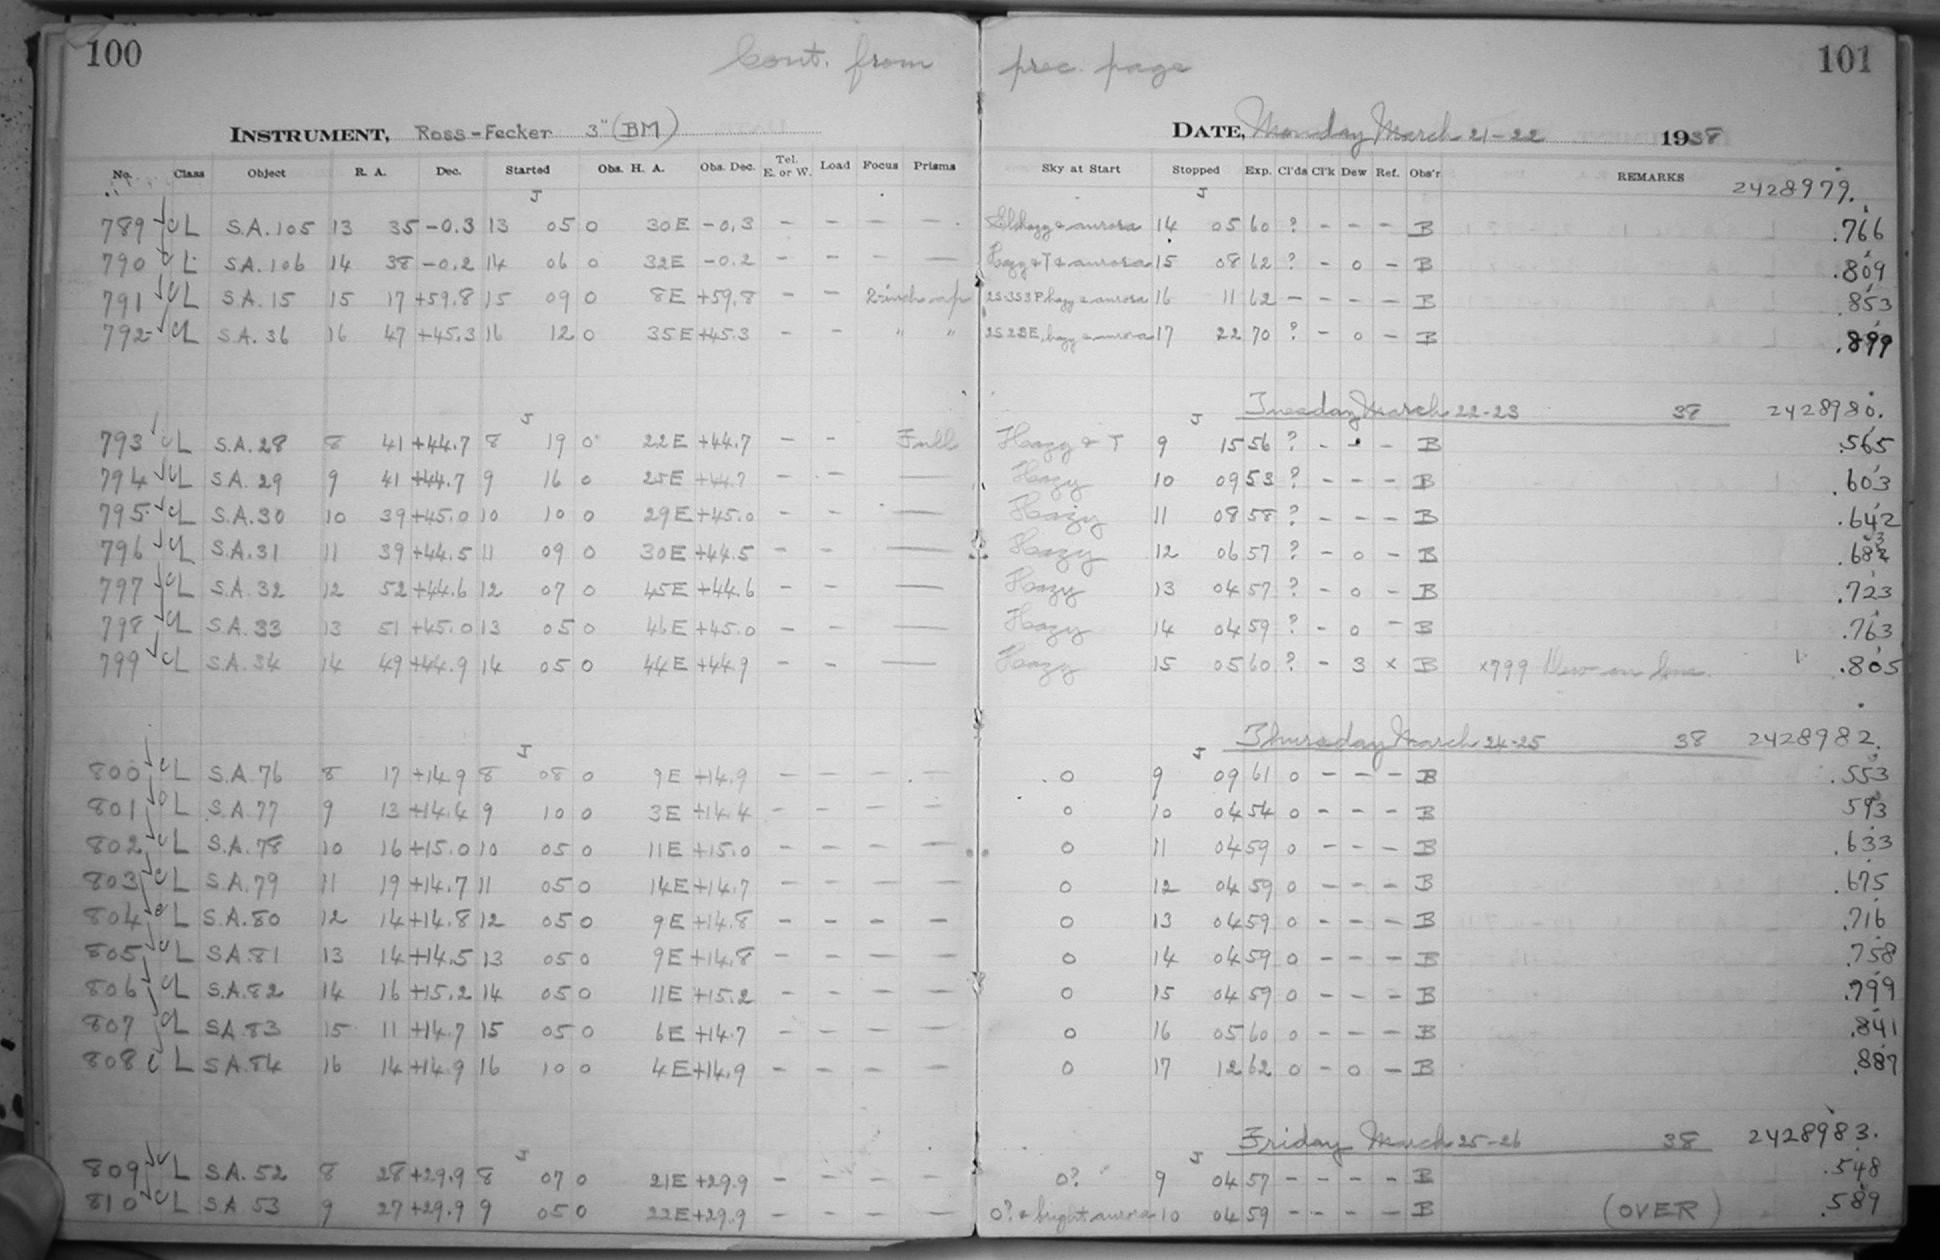 100 Cont. from prec. page 101
INSTRUMENT, Ross-Fecker 3" (BM) DATE, Monday March 21-22 1938
No. Class Object R. A. Dec. Started Obs. H. A. Obs. Dec. Tel. E. or W. Load Focus Prisms Sky at Start Stopped Exp. Cl'ds Cl'k Dew Ref. Obs'r REMARKS 2428979.
J J
789 CL S.A.105 13 35 -0.3 13 05 0 30E -0.3 - - - - hazy & aurora 14 05 60 ? - - - B .766
790 CL S.A.106 14 38 -0.2 14 06 0 32E -0.2 - - - - Hazy & T & aurora 15 08 62 ? - 0 - B .809
791 CL S.A.15 15 17 +59.8 15 09 0 8E +59.8 - - 2-inch ap hazy & aurora 16 11 62 - - - - B .853
792 CL S.A.36 16 47 +45.3 16 12 0 35E +45.3 - - " " hazy & aurora 17 22 70 ? - 0 - B .899
Tuesday March 22-23 38 2428980.
J J
793 CL S.A.28 8 41 +44.7 8 19 0 22E +44.7 - - Full Hazy & T 9 15 56 ? - - - B .565
794 CL S.A.29 9 41 +44.7 9 16 0 25E +44.7 - - — Hazy 10 09 53 ? - - - B .603
795 CL S.A.30 10 39 +45.0 10 10 0 29E +45.0 - - — Hazy 11 08 58 ? - - - B .642
796 CL S.A.31 11 39 +44.5 11 09 0 30E +44.5 - - — Hazy 12 06 57 ? - 0 - B .683
797 CL S.A.32 12 52 +44.6 12 07 0 45E +44.6 - - — Hazy 13 04 57 ? - 0 - B .723
798 CL S.A.33 13 51 +45.0 13 05 0 46E +45.0 - - — Hazy 14 04 59 ? - 0 - B .763
799 CL S.A.34 14 49 +44.9 14 05 0 44E +44.9 - - — Hazy 15 05 60 ? - 3 x B x799 Dew on lens. .805
Thursday March 24-25 38 2428982.
J J
800 CL S.A.76 8 17 +14.9 8 08 0 9E +14.9 - - - - 0 9 09 61 0 - - - B .553
801 CL S.A.77 9 13 +14.4 9 10 0 3E +14.4 - - - - 0 10 04 54 0 - - - B 593
802 CL S.A.78 10 16 +15.0 10 05 0 11E +15.0 - - - - 0 11 04 59 0 - - - B .633
803 CL S.A.79 11 19 +14.7 11 05 0 14E +14.7 - - - - 0 12 04 59 0 - - - B .675
804 CL S.A.80 12 14 +14.8 12 05 0 9E +14.8 - - - - 0 13 04 59 0 - - - B .716
805 CL S.A.81 13 14 +14.5 13 05 0 9E +14.8 - - - - 0 14 04 59 0 - - - B .758
806 CL S.A.82 14 16 +15.2 14 05 0 11E +15.2 - - - - 0 15 04 59 0 - - - B .799
807 CL S.A.83 15 11 +14.7 15 05 0 6E +14.7 - - - - 0 16 05 60 0 - - - B .841
808 CL S.A.84 16 14 +14.9 16 10 0 4E +14.9 - - - - 0 17 12 62 0 - 0 - B .887
Friday March 25-26 38 2428983.
J J
809 CL S.A.52 8 28 +29.9 8 07 0 21E +29.9 - - - - 0? 9 04 57 - - - - B .548
810 CL S.A 53 9 27 +29.9 9 05 0 22E +29.9 - - - - 0? & bright aurora 10 04 59 - - - - B (OVER) .589